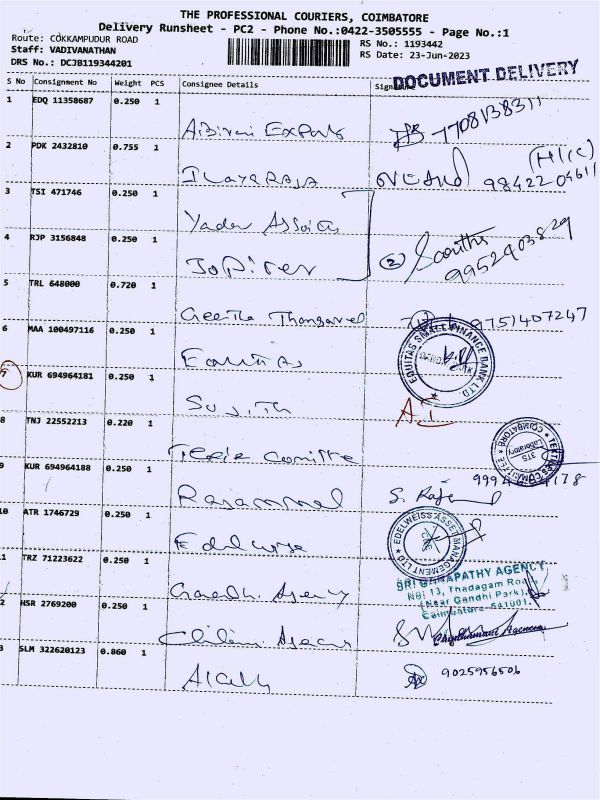 THE PROFESSIONAL COURIERS, COIMBATORE
Delivery Runsheet - PC2 - Phone No.:0422-3505555 - Page No.:1
Route: COKKAMPUDUR ROAD
RS No.: 1193442
Staff: VADIVANATHAN
RS Date: 23-Jun-2023
DRS No.: DCJB119344201
DOCUMENT DELIVERY
S No Consignment No Weight PCS Consignee Details
1 EDQ 11358687 0.250 1
Exports 7708138311
2 PDK 2432810 0.755 1
(H/C)
ILAYARAJA 98422 04611
3 TSI 471746 0.250 1
Yadav
4 RJP 3156848 0.250 1
Jupiter (2) 9952403829
5 TRL 648000 0.720 1
Geetha Thangavel 9751407247
6 MAA 100497116 0.250 1
Equitas
EQUITAS SMALL FINANCE BANK LTD.
7 KUR 694964181 0.250 1
Sujith
8 TNJ 22552213 0.220 1
TEXTILES COMMITTEE
Laboratory
COIMBATORE
9 KUR 694964188 0.250 1
Rasammal S. Raje
10 ATR 1746729 0.250 1
Edelweiss
EDELWEISS ASSET MANAGEMENT LTD
CBE
11 TRZ 71223622 0.250 1
Ganesh Agency
SRI GANAPATHY AGENCY
No: 13, Thadagam Road,
(Near Gandhi Park),
Coimbatore-641001.
12 HSR 2769200 0.250 1
Chinthamani Agencies
13 SLM 322620123 0.860 1
9025956506